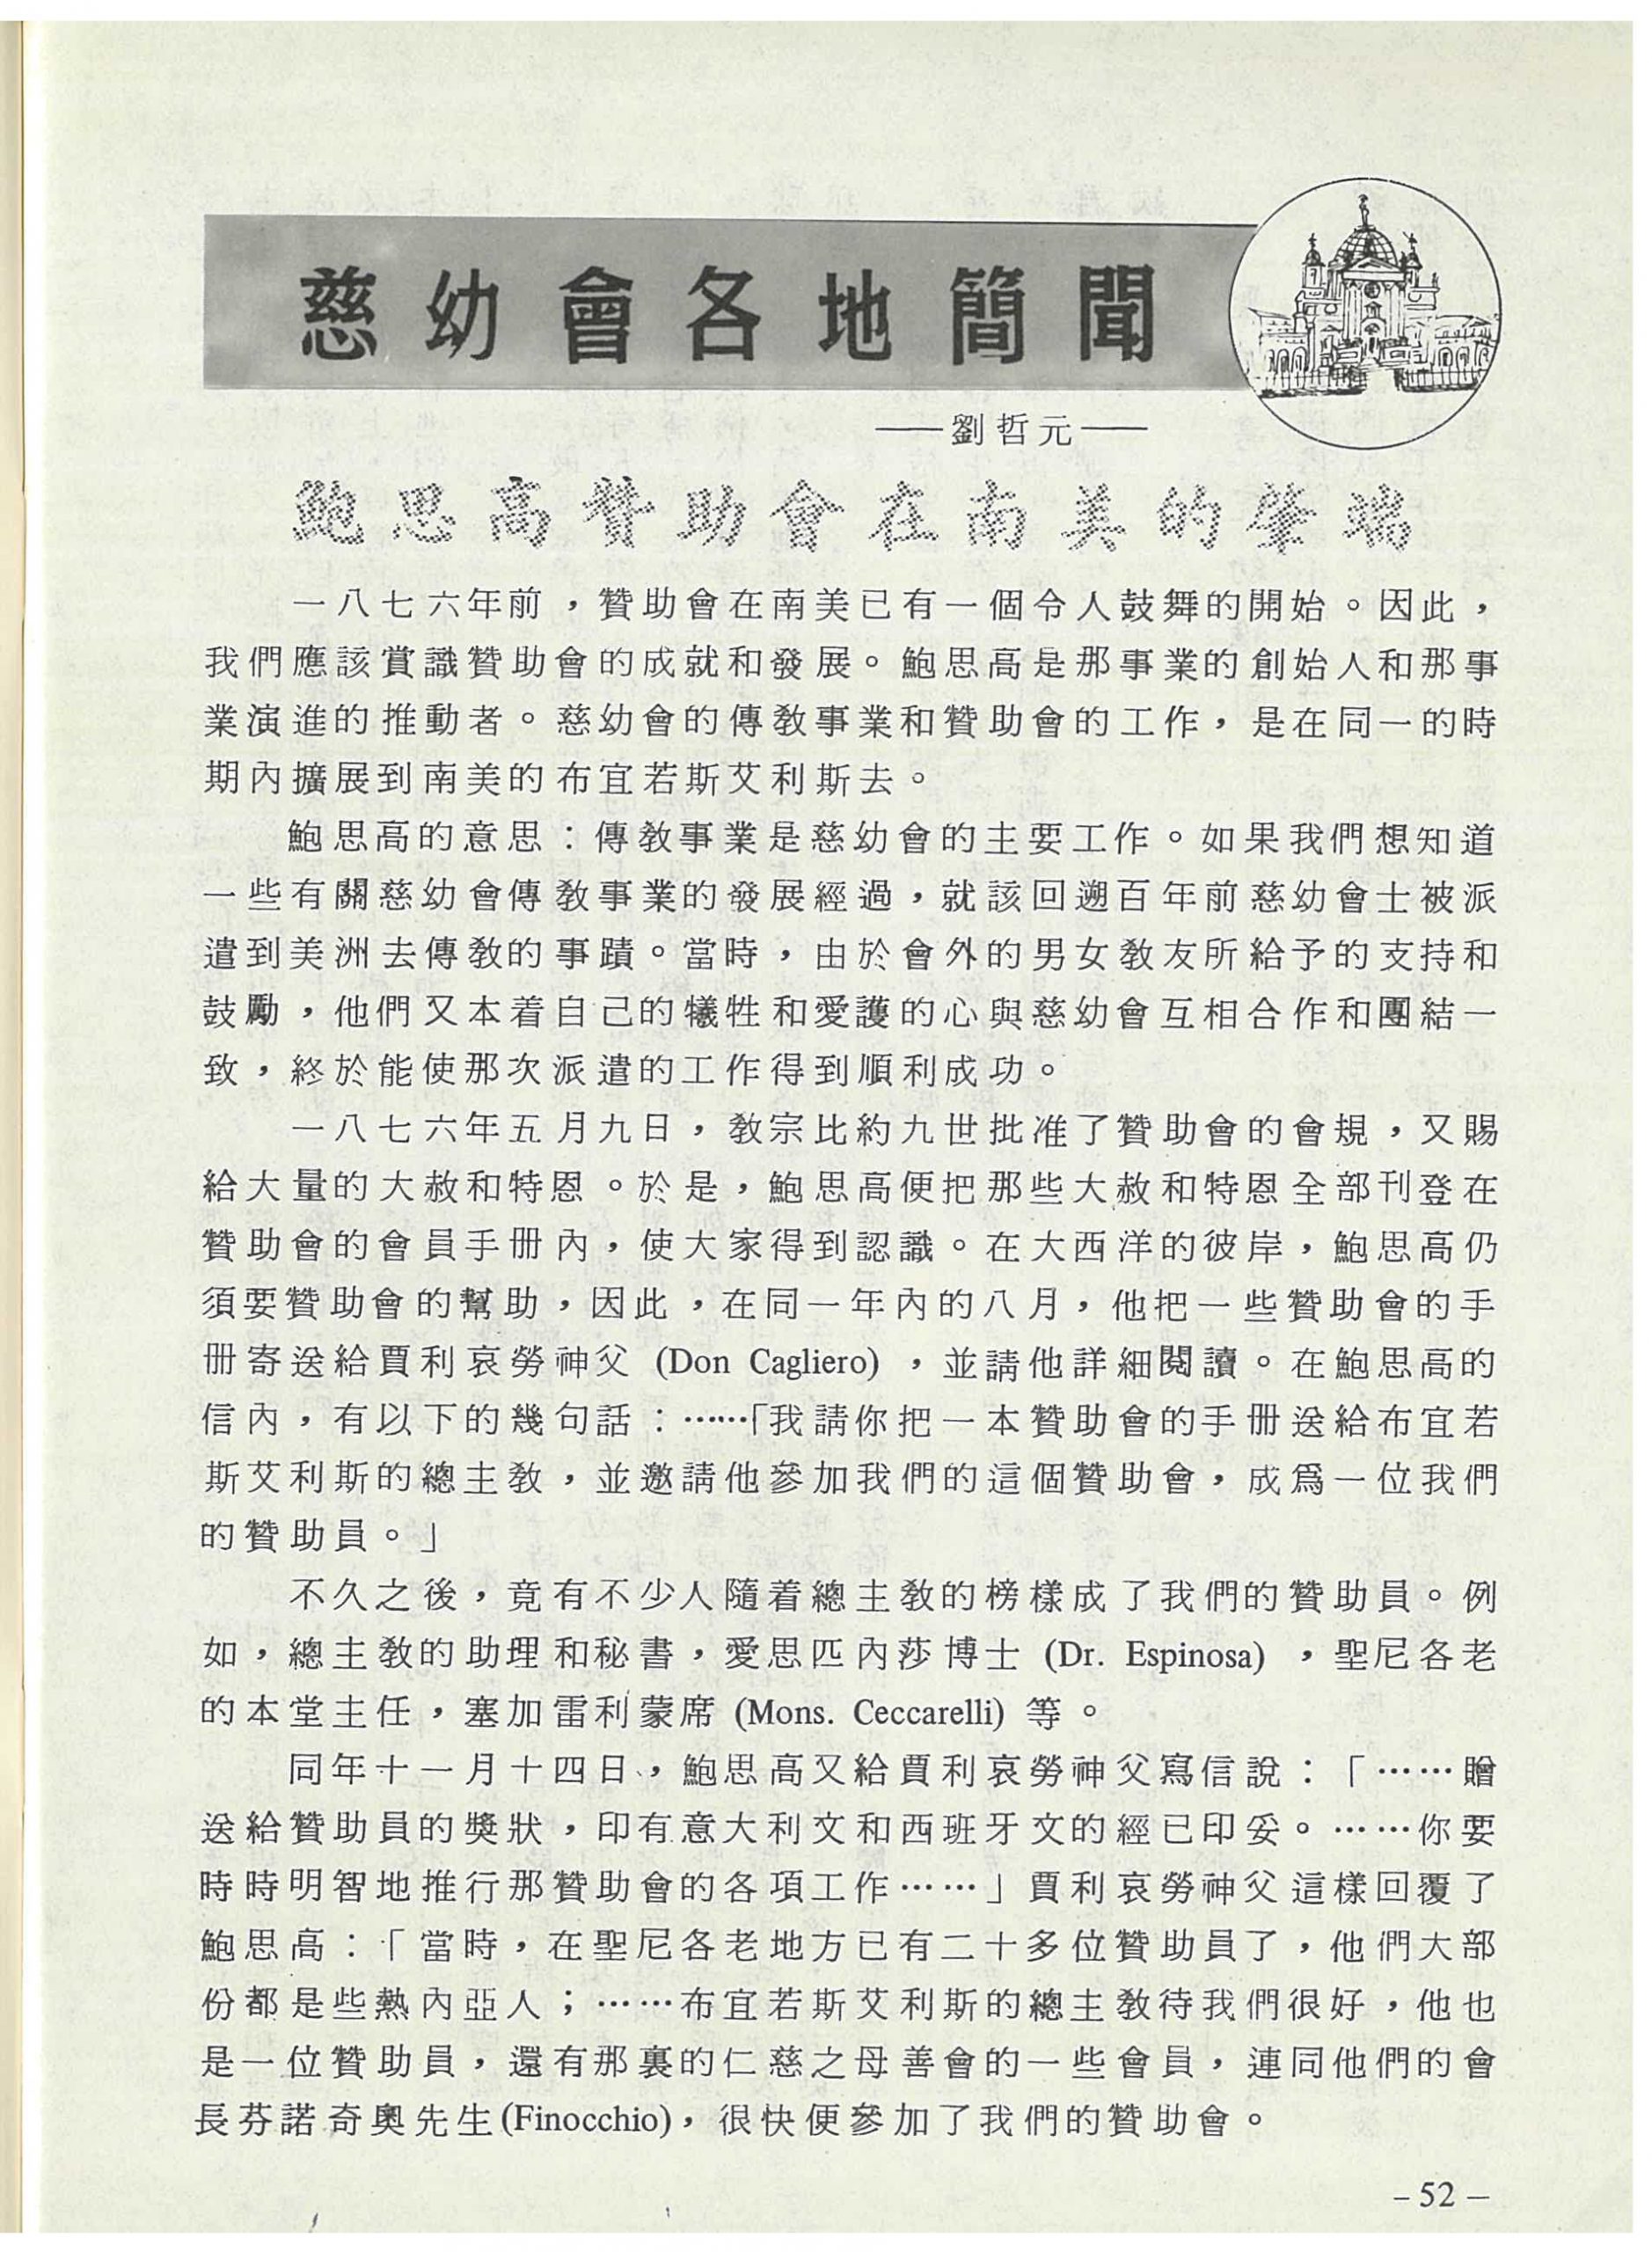 慈幼會各地簡聞
——劉哲元——
鮑思高贊助會在南美的肇端
一八七六年前，贊助會在南美已有一個令人鼓舞的開始。因此，
我們應該賞識贊助會的成就和發展。鮑思高是那事業的創始人和那事
業演進的推動者。慈幼會的傳教事業和贊助會的工作，是在同一的時
期內擴展到南美的布宜若斯艾利斯去。
鮑思高的意思：傳教事業是慈幼會的主要工作。如果我們想知道
一些有關慈幼會傳教事業的發展經過，就該回遡百年前慈幼會士被派
遣到美洲去傳教的事蹟。當時，由於會外的男女教友所給予的支持和
鼓勵，他們又本着自己的犧牲和愛護的心與慈幼會互相合作和團結一
致，終於能使那次派遣的工作得到順利成功。
一八七六年五月九日，教宗比約九世批准了贊助會的會規，又賜
給大量的大赦和特恩。於是，鮑思高便把那些大赦和特恩全部刊登在
贊助會的會員手册內，使大家得到認識。在大西洋的彼岸，鮑思高仍
須要贊助會的幫助，因此，在同一年內的八月，他把一些贊助會的手
册寄送給賈利哀勞神父 (Don Cagliero) ，並請他詳細閱讀。在鮑思高的
信內，有以下的幾句話：……「我請你把一本贊助會的手册送給布宜若
斯艾利斯的總主教，並邀請他參加我們的這個贊助會，成爲一位我們
的贊助員。」
不久之後，竟有不少人隨着總主教的榜樣成了我們的贊助員。例
如，總主教的助理和秘書，愛思匹內莎博士 (Dr. Espinosa) ，聖尼各老
的本堂主任，塞加雷利蒙席 (Mons. Ceccarelli) 等。
同年十一月十四日，鮑思高又給賈利哀勞神父寫信說：「……贈
送給贊助員的獎狀，印有意大利文和西班牙文的經已印妥。……你要
時時明智地推行那贊助會的各項工作……」賈利哀勞神父這樣回覆了
鮑思高：「當時，在聖尼各老地方已有二十多位贊助員了，他們大部
份都是些熱內亞人；……布宜若斯艾利斯的總主教待我們很好，他也
是一位贊助員，還有那裏的仁慈之母善會的一些會員，連同他們的會
長芬諾奇奧先生(Finocchio)，很快便參加了我們的贊助會。
–52–